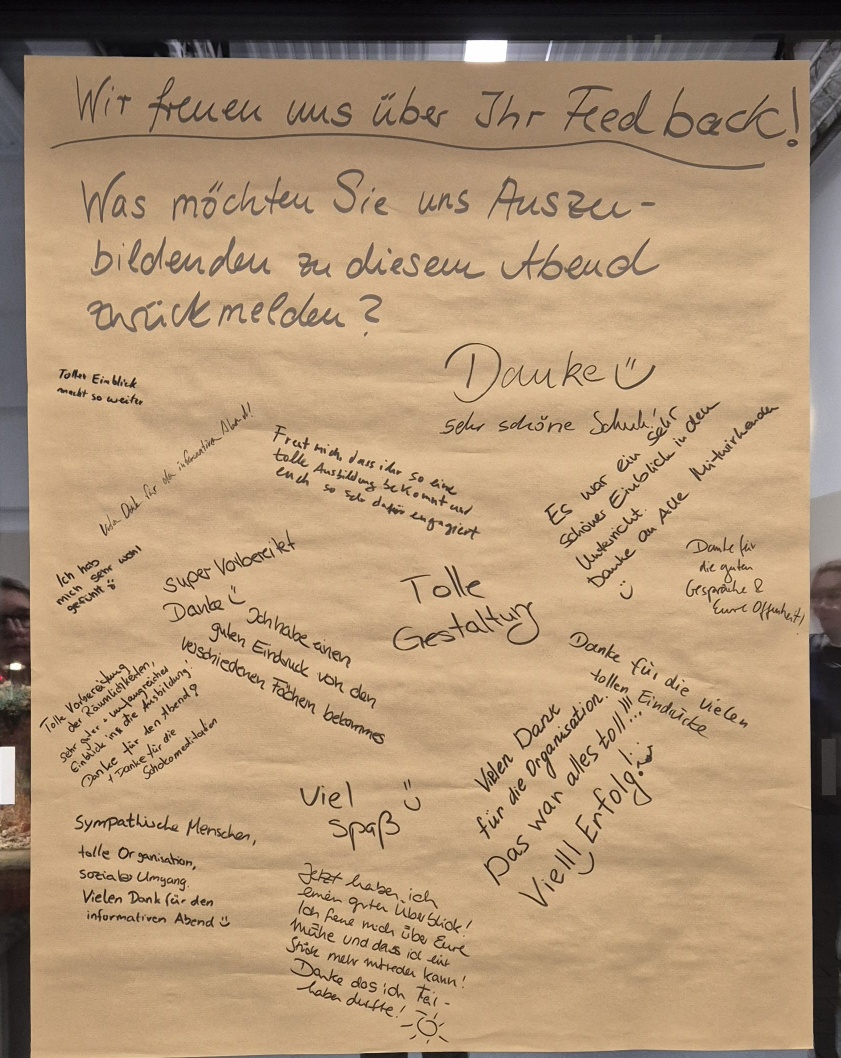 Wir freuen uns über Ihr Feedback!
Was möchten Sie uns Auszu-
bildenden zu diesem Abend
zurückmelden?
Danke
sehr schöne Schule!
Toller Einblick
macht so weiter
Vielen Dank für den informativen Abend!
Freut mich, dass ihr so eine
tolle Ausbildung bekommt und
euch so sehr dafür engagiert
Es war ein sehr
schöner Einblick in den
Unterricht.
Danke an Alle Mitwirkenden
Danke für
die guten
Gespräche &
Eure Offenheit!
Ich hab
mich sehr wohl
gefühlt
Super Vorbereitet
Danke
Ich habe einen
guten Eindruck von den
verschiedenen Fächen bekommes
Tolle
Gestaltung
Danke für die vielen
tollen Eindrücke
Tolle Vorbereitung
der Räumlichkeiten,
sehr guter + umfangreicher
Einblick in die Ausbildung!
Danke für den Abend?
+ Danke für die
Schokomeditation
Vielen Dank
für die Organisation.
Das war alles toll!!!
Viel Erfolg!
Viel
Spaß
Sympathische Menschen,
tolle Organisation,
sozialer Umgang.
Vielen Dank für den
informativen Abend
Jetzt haben ich
einen guten Überblick!
Ich freue mich über Eure
Mühe und dass ich ein
Stück mehr mitreden kann!
Danke das ich Teil-
haben durfte!